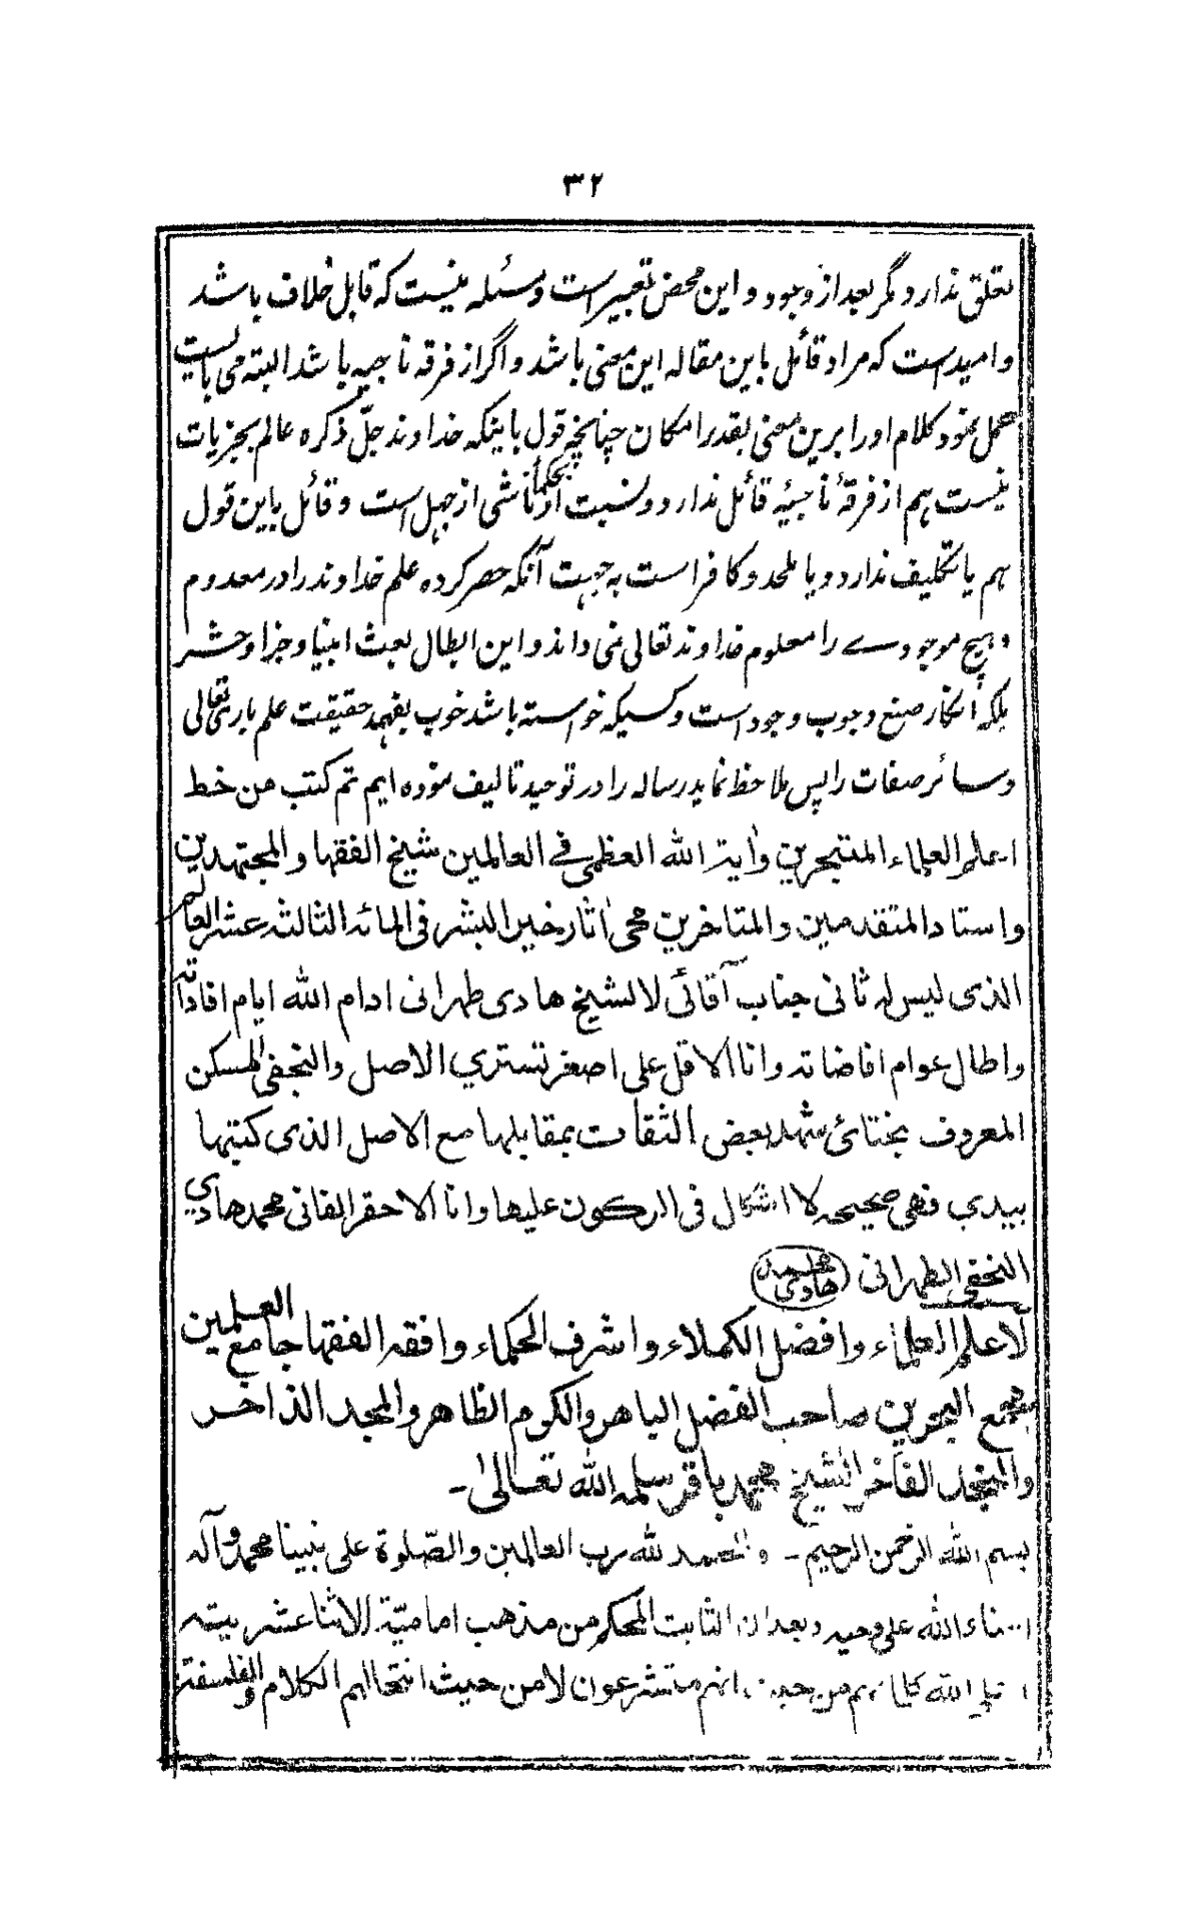 ۳۲
تعلق ندارد مگر بعد از وجود و این محض تعبیر است و مسئله نیست که قابل خلاف باشد
و امید است که مراد قائل باین مقاله این معنی باشد و اگر از فرقه ناجیه باشد البته می بایست
حمل نمود کلام او را برین معنی بقدر امکان چنانچه قول باینکه خداوند جلّ ذکره عالم بجزیات
نیست هم از فرقهٔ ناجیهٔ قائل ندارد و نسبت او بحکما ناشی از جهل است و قائل باین قول
هم یا تکلیف ندارد و یا ملحد و کافر است به جهت آنکه حصر کرده علم خداوند را در معدوم
و هیچ موجودے را معلوم خداوند تعالی نمی داند و این ابطال بعث انبیا و جزا و حشر
بلکه انکار صنع وجوب وجود است و کسیکه خواسته باشد خوب بفهمد حقیقت علم باری تعالی
و سائر صفات را پس ملاحظ نماید رساله را در توحید تالیف نموده ایم تم کتب من خط
اعلم العلماء المتبحرین و اٰیة الله العظمی فے العالمین شیخ الفقها و المجتهدین
و استاد المتقدمین و المتاخرین محی اٰثار خیر البشر فی المائه الثالثه عشر العالم
الذی لیس له ثانی جناب آقائی لا لشیخ هادی طهرانی ادام الله ایام افاداته
و اطال عوام افاضاته و انا الاقل علی اصغر تستری الاصل و النجفی المسکن
المعروف بختائی شهد بعض الثقات بمقابلها مع الاصل الذی کتبتها
بیدی فهی صحیحه لا اشکال فی الرکون علیها و انا الاحقر الفانی محمد هادی
النجفی الطهرانی محمد هادی
لاعلم العلماء و افضل الکملاء و اشرف الحکماء و افقه الفقها جامع العلمین
مجمع البحرین صاحب الفضل الباهر و الکرم الظاهر و المجد الذاخر
و الفاخر الشیخ محمد باقر سلمه الله تعالیٰ۔
بسم الله الرحمن الرحیم۔ و الحمد لله رب العالمین و الصّلوٰة علی نبینا محمد و آله
امناء الله علی وحیه و بعد ان الثابت المحکم من مذهب امامیّة الاثنا عشریته
الله من انهم متشرعون لا من حیث انتحالهم الکلام و الفلسفة